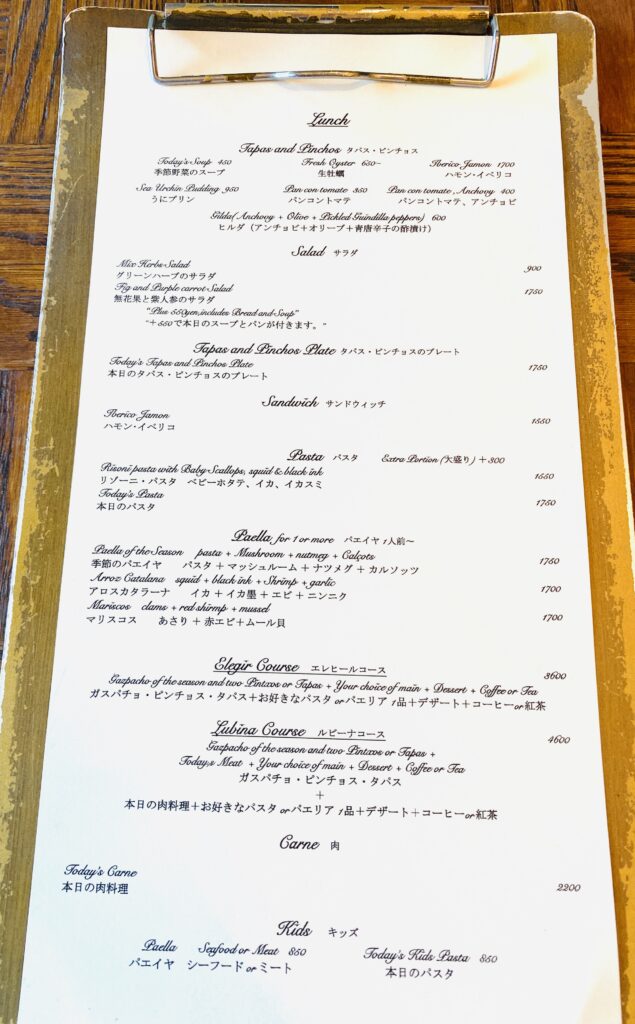 Lunch
Tapas and Pinchos タパス・ピンチョス
Today's Soup 450 Fresh Oyster 650~ Iberico Jamon 1700
季節野菜のスープ 生牡蠣 ハモン・イベリコ
Sea Urchin Pudding 950 Pan con tomate 350 Pan con tomate, Anchovy 400
うにプリン パンコントマテ パンコントマテ、アンチョビ
Gilda( Anchovy + Olive + Pickled Guindilla peppers) 600
ヒルダ（アンチョビ＋オリーブ＋青唐辛子の酢漬け）
Salad サラダ
Mix Herbs Salad 900
グリーンハーブのサラダ
Fig and Purple carrot Salad 1750
無花果と紫人参のサラダ
"Plus 550yen,includes Bread and Soup"
"＋550で本日のスープとパンが付きます。"
Tapas and Pinchos Plate タパス・ピンチョスのプレート
Today's Tapas and Pinchos Plate 1750
本日のタパス・ピンチョスのプレート
Sandwich サンドウィッチ
Iberico Jamon 1550
ハモン・イベリコ
Pasta パスタ Extra Portion (大盛り) ＋300
Risoni pasta with Baby Scallops, squid & black ink 1550
リゾーニ・パスタ ベビーホタテ、イカ、イカスミ
Today's Pasta 1750
本日のパスタ
Paella for 1 or more パエイヤ 1人前～
Paella of the Season pasta + Mushroom + nutmeg + Calçots 1750
季節のパエイヤ パスタ＋マッシュルーム＋ナツメグ＋カルソッツ
Arroz Catalana squid + black ink + Shrimp + garlic 1700
アロスカタラーナ イカ＋イカ墨＋エビ＋ニンニク
Mariscos clams + red shirmp + mussel 1700
マリスコス あさり＋赤エビ＋ムール貝
Elegir Course エレヒールコース 3600
Gazpacho of the season and two Pintxos or Tapas + Your choice of main + Dessert + Coffee or Tea
ガスパチョ・ピンチョス・タパス＋お好きなパスタ or パエリア 1品＋デザート＋コーヒーor紅茶
Lubina Course ルビーナコース 4600
Gazpacho of the season and two Pintxos or Tapas +
Today,s Meat + Your choice of main + Dessert + Coffee or Tea
ガスパチョ・ピンチョス・タパス
＋
本日の肉料理＋お好きなパスタ or パエリア 1品＋デザート＋コーヒーor紅茶
Carne 肉
Today's Carne
本日の肉料理 2200
Kids キッズ
Paella Seafood or Meat 850 Today's Kids Pasta 850
パエイヤ シーフード or ミート 本日のパスタ